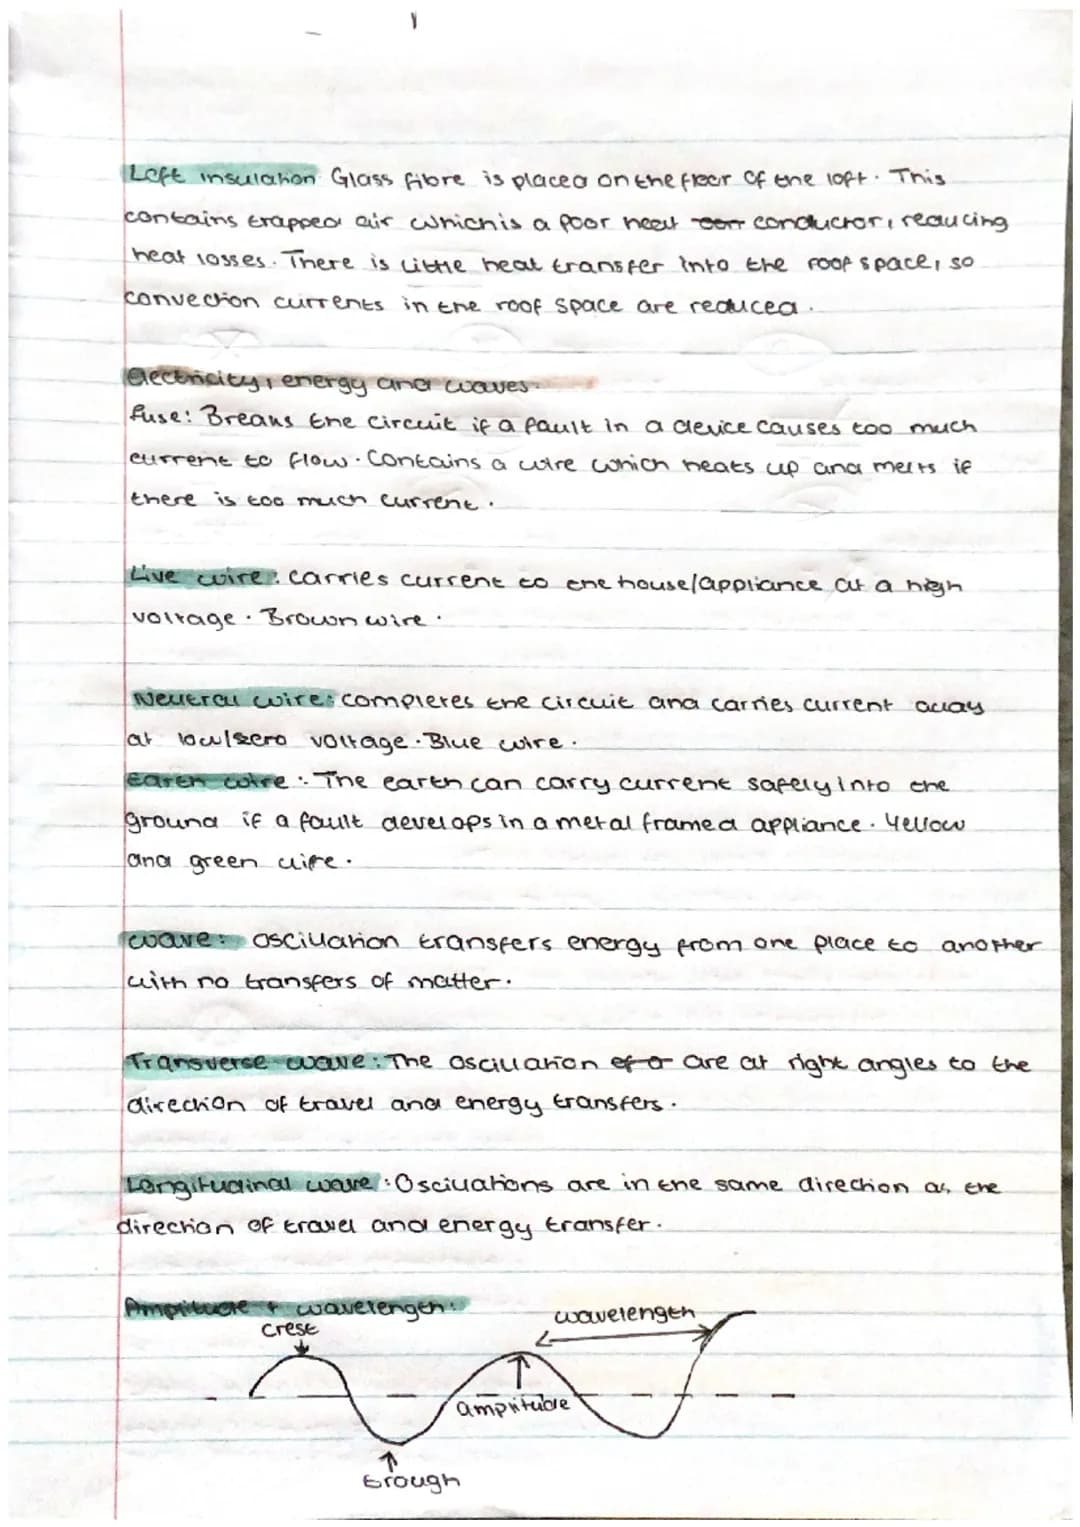 Loft insulation: Glass fibre is placed on the floor of the loft. This
contains trapped air which is a poor heat con conductror, reducing
heat losses. There is little heat transfer into the roof space, so
convection currents in the roof space are reduced.
Electricity, energy and waves.
fuse: Breaks the circuit if a fault in a device causes too much
current to flow. Contains a wire which heats up and melts if
there is too much current.
Live wire: carries current to the house/appliance at a high
voltage. Brown wire.
Neutral wire: completes the circuit and carries current away
at low/zero voltage. Blue wire.
Earth wire: The earth can carry current safely into the
ground if a fault develops in a metal framed appliance. Yellow
and green wire.
wave: oscillation transfers energy from one place to another
with no transfers of matter.
Transverse wave: The oscillation of o are at right angles to the
direction of travel and energy transfers.
Longitudinal wave: Oscillations are in the same direction as the
direction of travel and energy transfer.
Amplitude + wavelength:
crest
wavelength
amplitude
trough